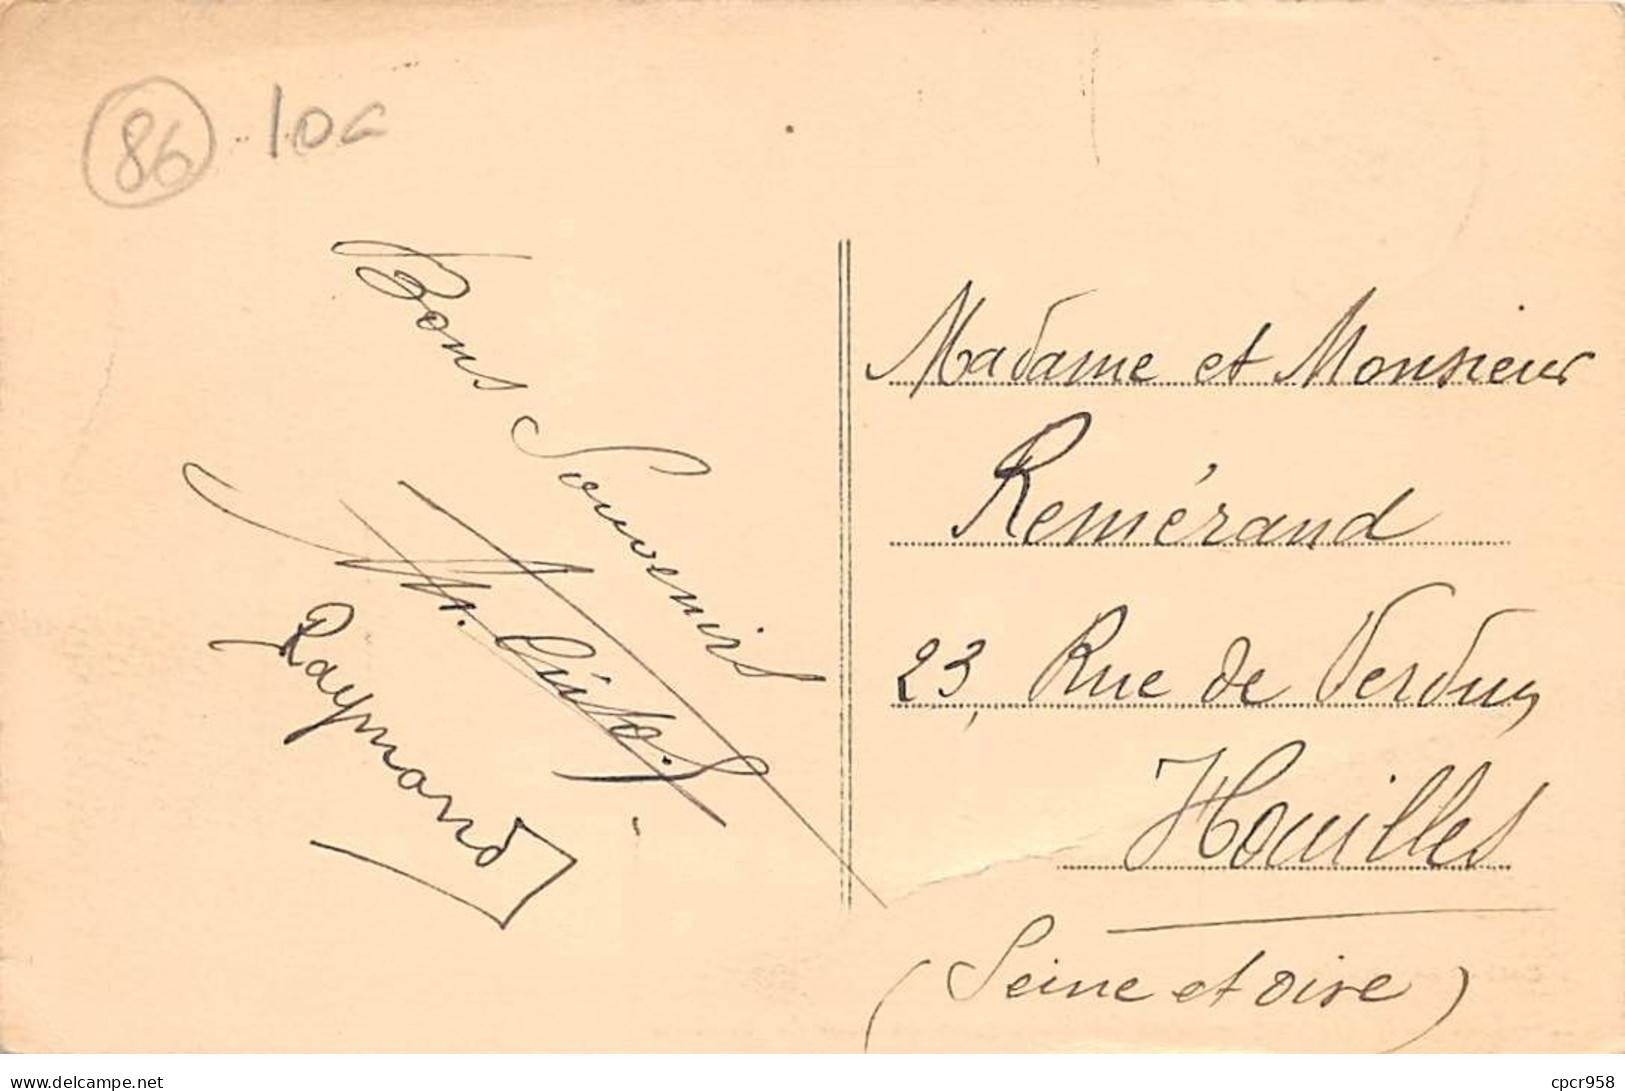 86
Bons Souvenirs
Raymond
Madame et Monsieur
Remérand
23, Rue de Verdun
Houilles
(Seine et Oise)
www.delcampe.net
cpcr958